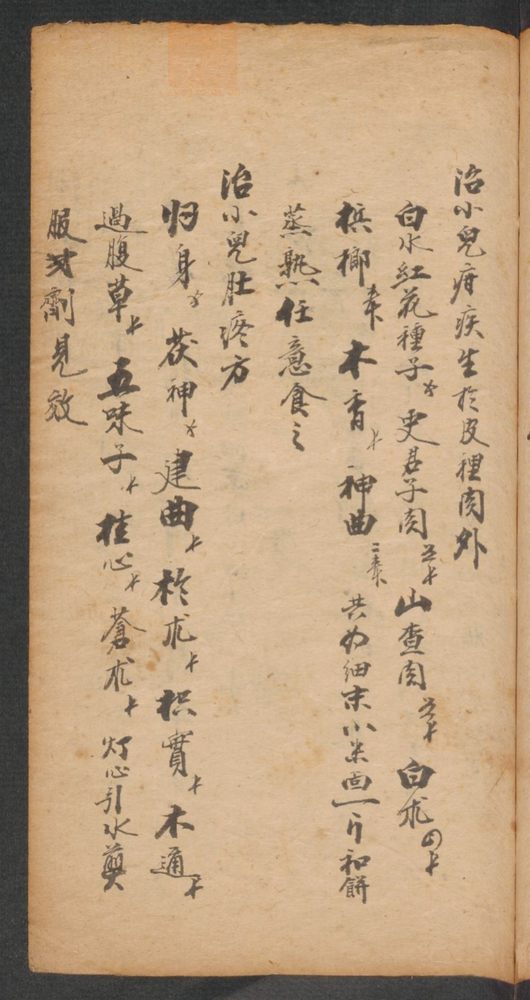 治小兒疳疾生於皮裡肉外
白水紅花種子 史君子肉 山查肉 白朮
槟榔 木香 神曲 共为细末小米面一斤和餅
蒸熟任意食之
治小兒肚疼方
归身 茯神 建曲 於朮 枳實 木通
過腹草 五味子 桂心 蒼朮 灯心引水煎
服 劑見效